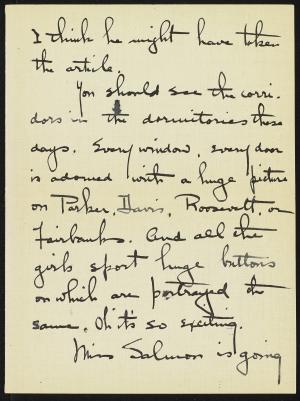 I think he might have taken
the article.
You should see the corri-
dors in the dormitories these
days. Every window, every door
is adorned with a huge picture
on Parker, Davis, Roosevelt, or
Fairbanks. And all the
girls sport huge buttons
on which are portrayed th
same. Oh it's so exciting.
Miss Salmon is going